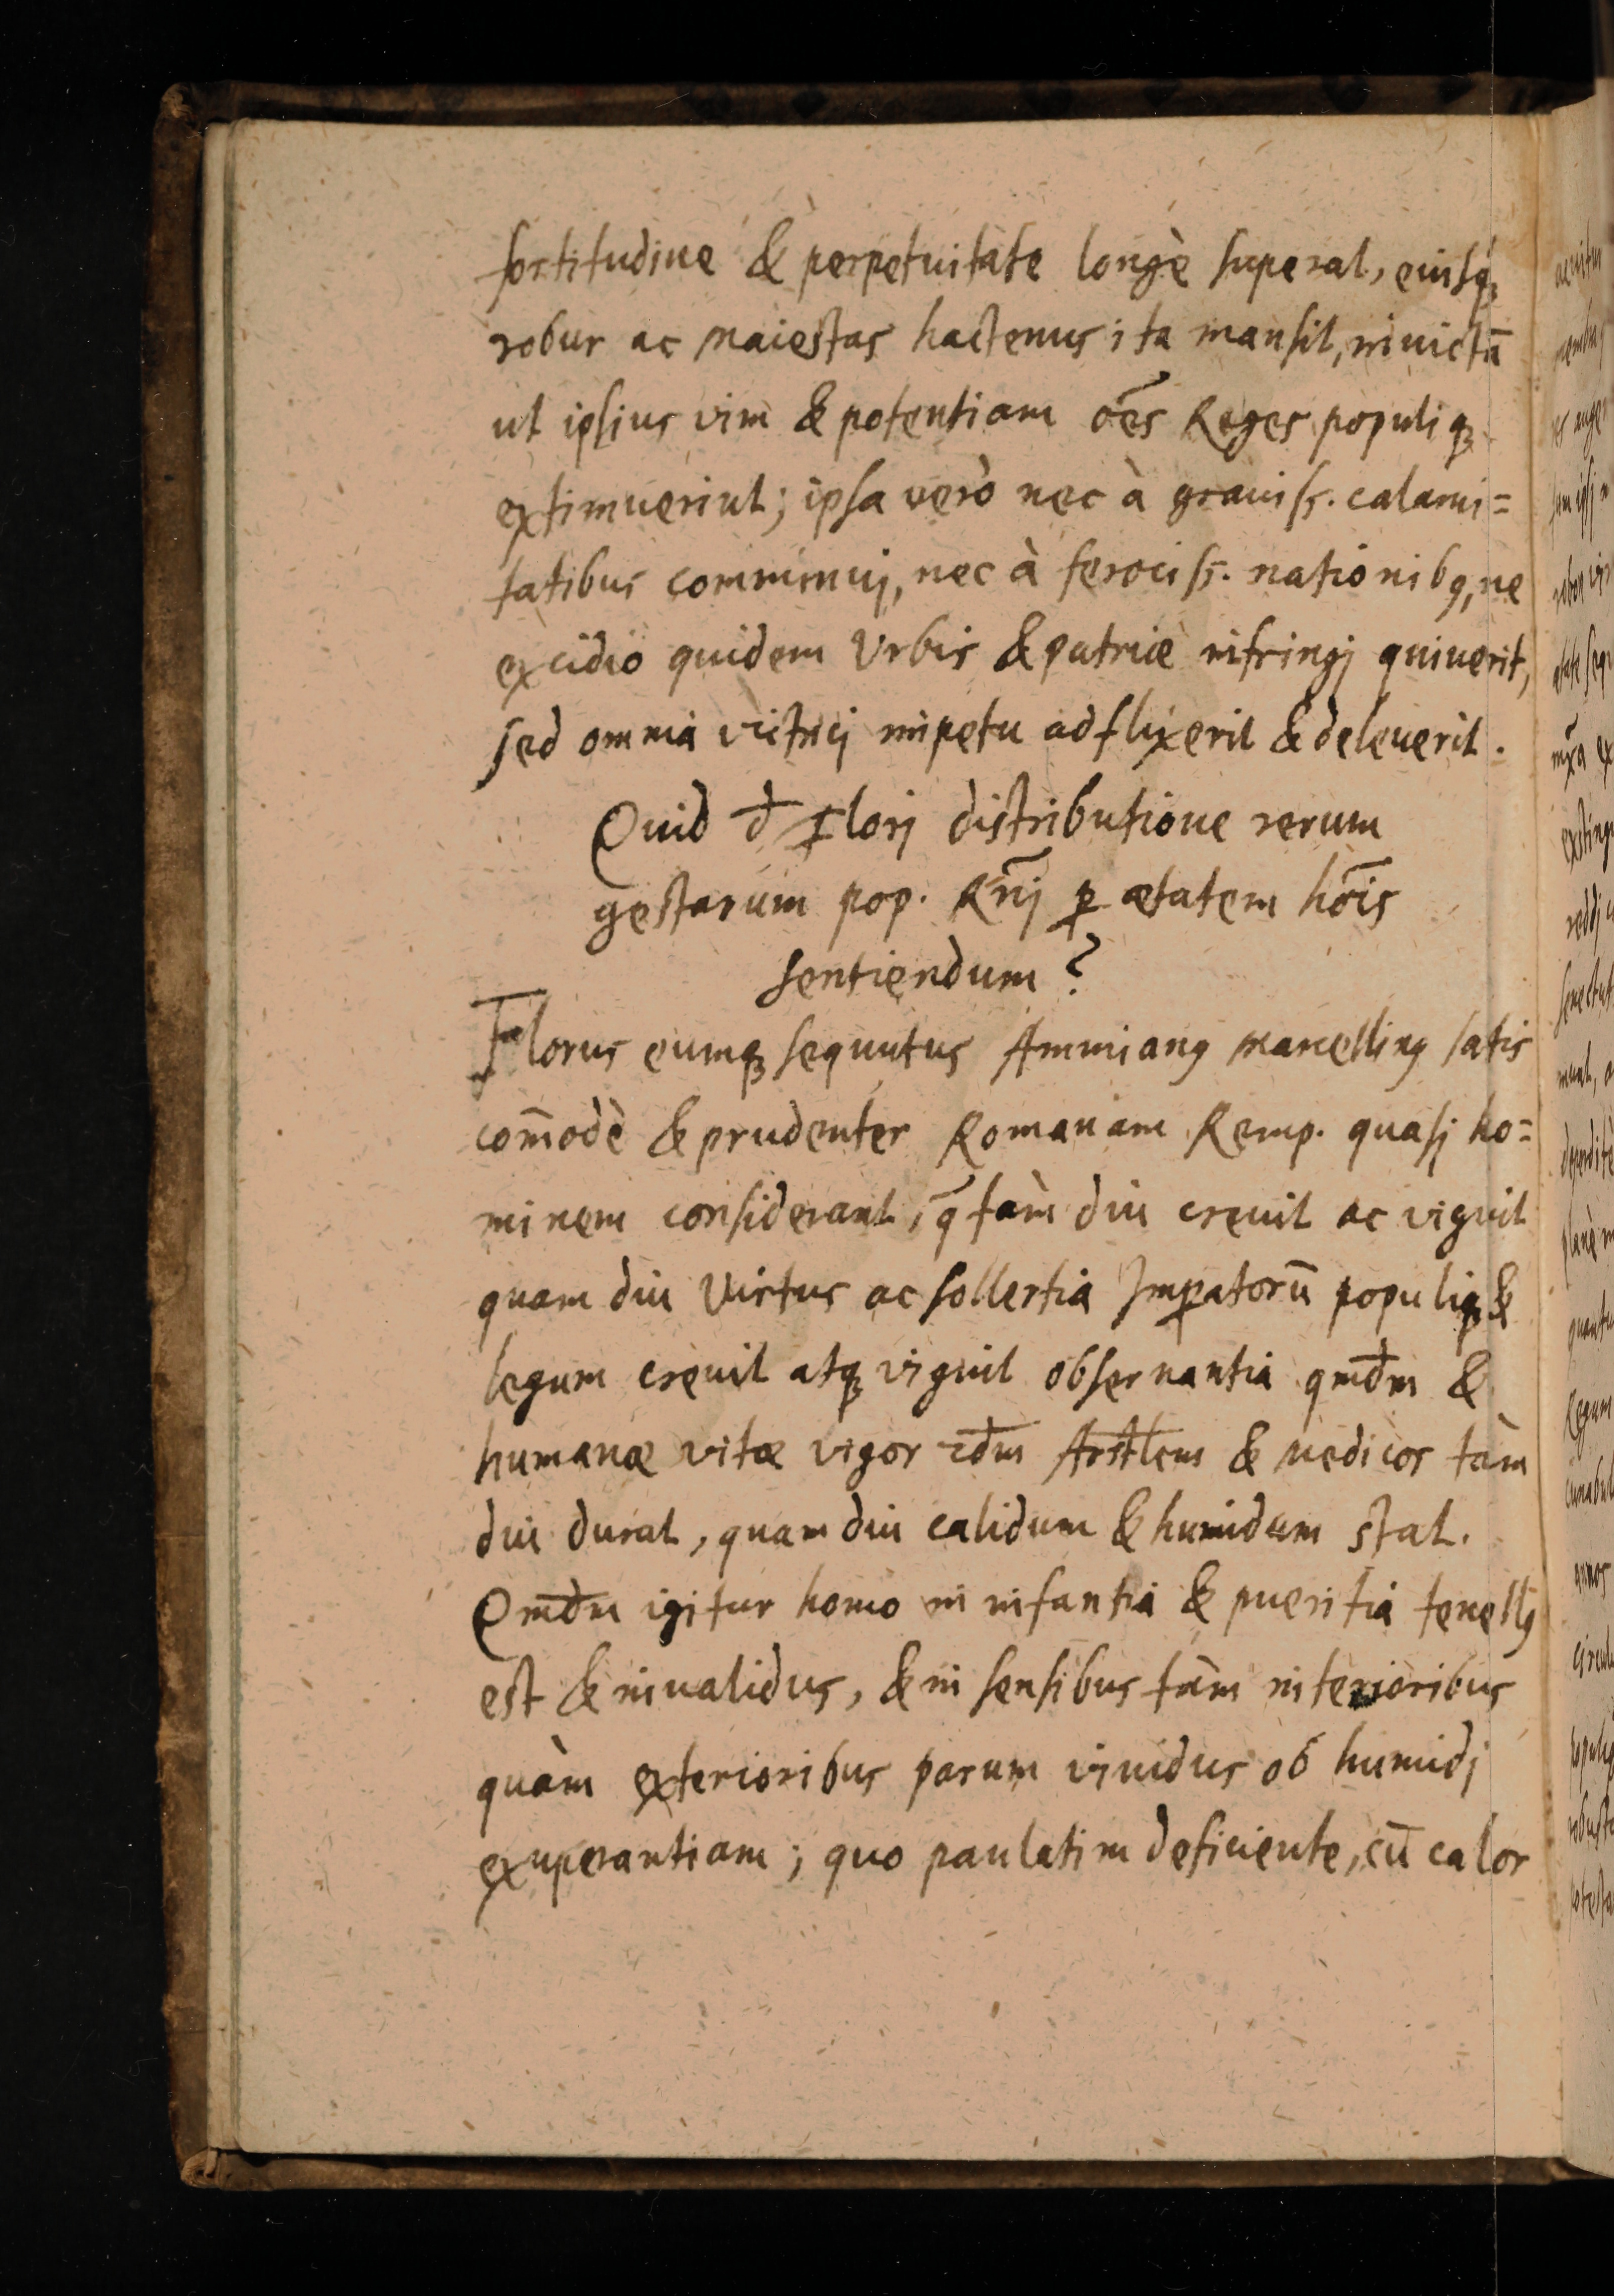 fortitudine & perpetuitate longè superat, eiusq́;
robur ac Maiestas hactenus ita mansit, inuictū
ut ipsius vim & potentiam oēs Reges populiq;
extimuerint; ipsa verò nec à grauiss. calami=
tatibus comminuj, nec à ferociss. nationibꝯ, ne
excidio quidem Vrbis & patriæ infringj quiuerit,
sed omnia victricj impetu adflixerit & deleuerit.
Quid đ Florj distributione rerum
gestarum pop. Rn̄j ꝑ ætatem hōis
sentiendum?
Florus eumq; sequutus Ammianꝯ Marcellinꝯ satis
com̄odè & prudenter Romanam Remp. quasj ho=
minem considerant, q̄ tàm diu creuit ac viguit
quam diu Virtus ac sollertia Imꝑatorū populiq; &
legum creuit atq; viguit obseruantia qmđm &
humanæ vitæ vigor scđm Arstlem & Medicos tàm
diu durat, quam diu calidum & humidum stat.
Qmđm igitur homo in infantia & pueritia tenellꝯ
est & inualidus, & in sensibus tàm interioribus
quàm exterioribus parum viuidus ob humidj
exuperantiam; quo paulatim deficiente, cū calor